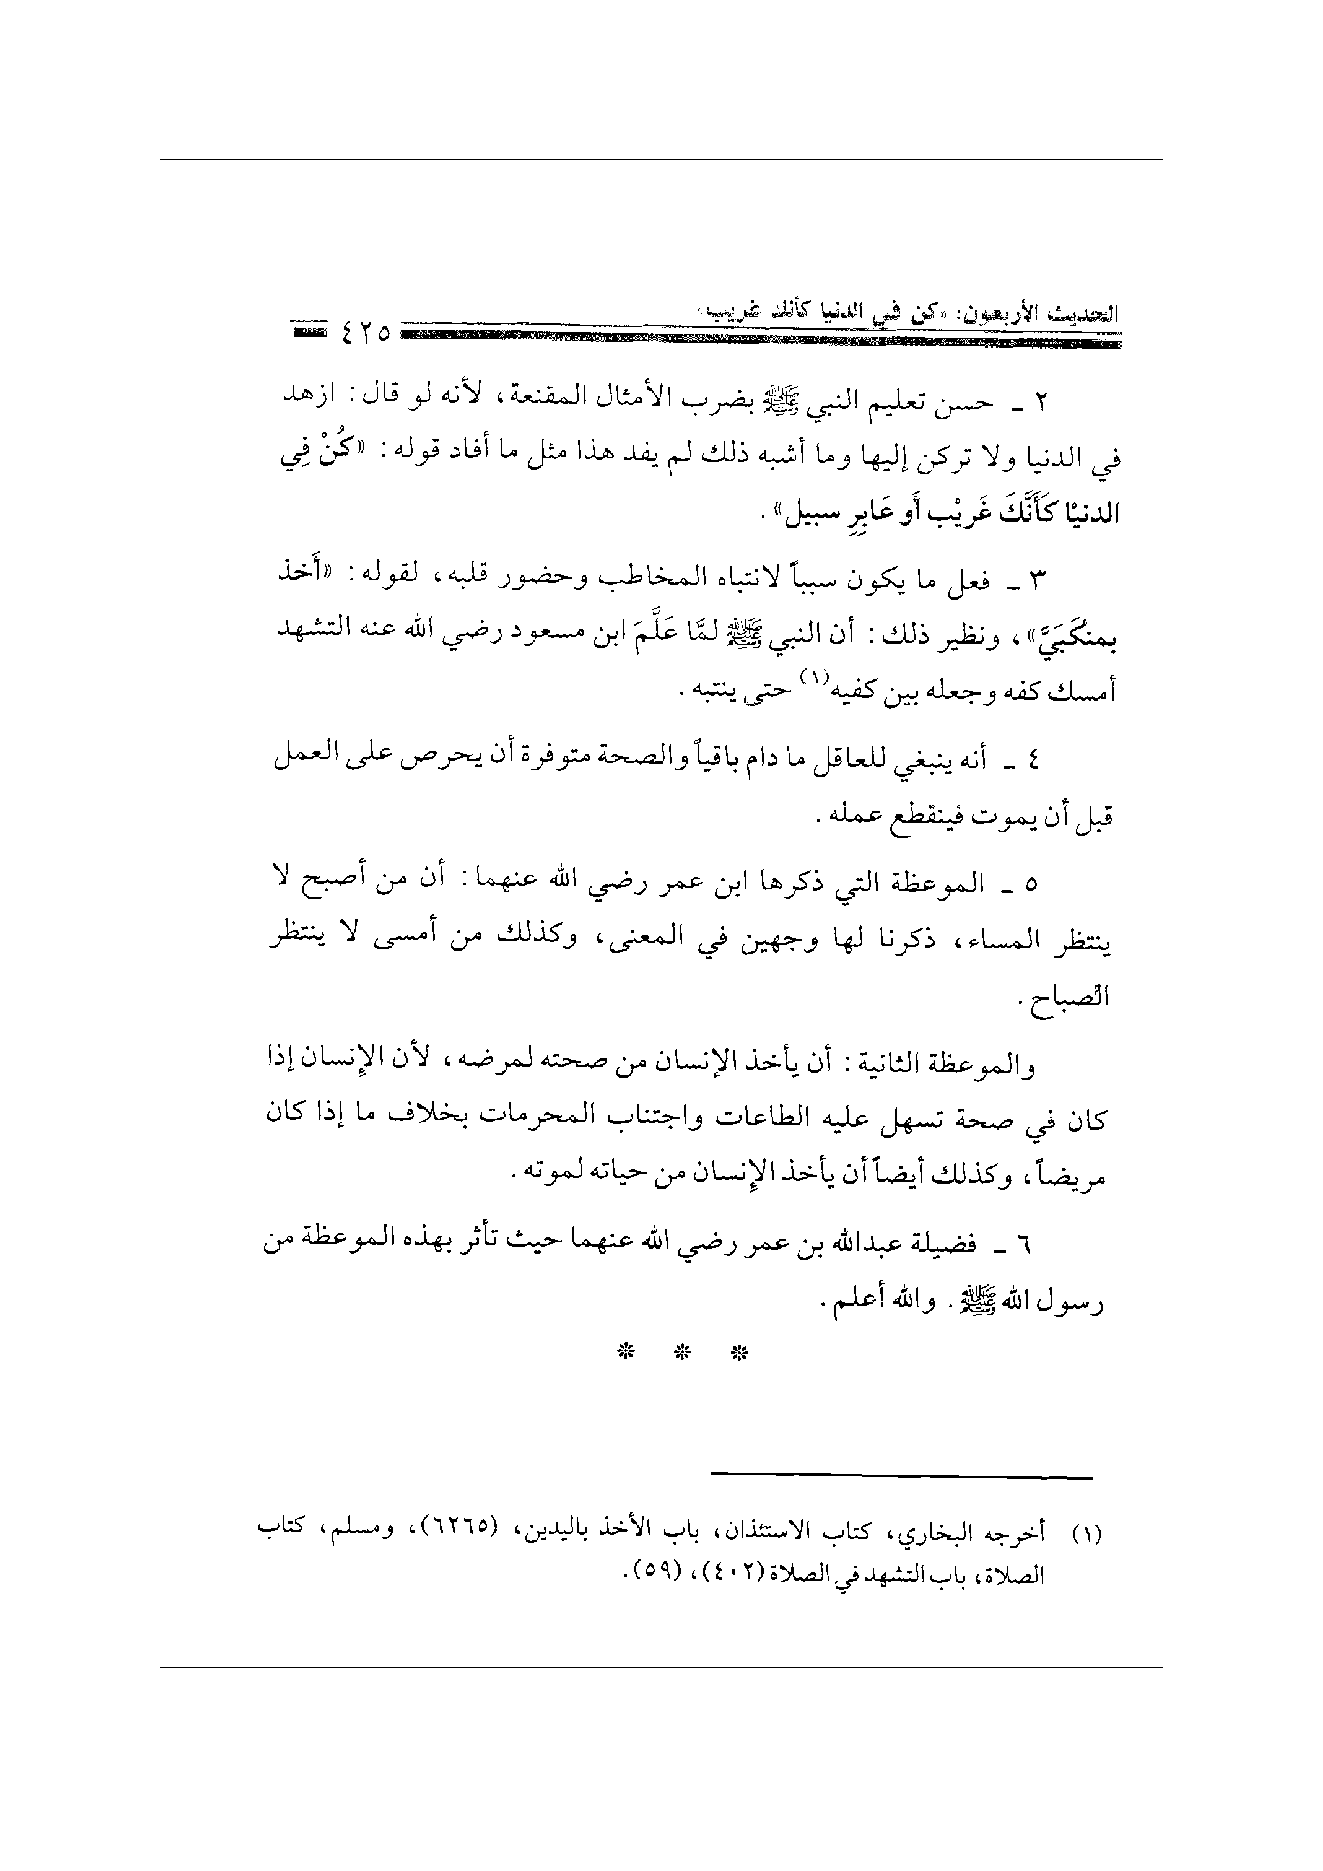 الحديث الأربعون: «كن في الدنيا كأنك غريب»
٤٢٥
٢ ـ حسن تعليم النبي ﷺ بضرب الأمثال المقنعة، لأنه لو قال: ازهد
في الدنيا ولا تركن إليها وما أشبه ذلك لم يفد هذا مثل ما أفاد قوله: «كُنْ فِي
الدنيْا كَأَنَّكَ غَريْب أَو عَابِرِ سبيل».
٣ ـ فعل ما يكون سبباً لانتباه المخاطب وحضور قلبه، لقوله: «أَخذ
بمنكَبَيَّ»، ونظير ذلك: أن النبي ﷺ لمَّا عَلَّمَ ابن مسعود رضي الله عنه التشهد
أمسك كفه وجعله بين كفيه(١) حتى ينتبه.
٤ ـ أنه ينبغي للعاقل ما دام باقياً والصحة متوفرة أن يحرص على العمل
قبل أن يموت فينقطع عمله.
٥ ـ الموعظة التي ذكرها ابن عمر رضي الله عنهما: أن من أصبح لا
ينتظر المساء، ذكرنا لها وجهين في المعنى، وكذلك من أمسى لا ينتظر
الصباح.
والموعظة الثانية: أن يأخذ الإنسان من صحته لمرضه، لأن الإنسان إذا
كان في صحة تسهل عليه الطاعات واجتناب المحرمات بخلاف ما إذا كان
مريضاً، وكذلك أيضاً أن يأخذ الإنسان من حياته لموته.
٦ ـ فضيلة عبدالله بن عمر رضي الله عنهما حيث تأثر بهذه الموعظة من
رسول الله ﷺ. والله أعلم.
* * *
(١) أخرجه البخاري، كتاب الاستئذان، باب الأخذ باليدين، (٦٢٦٥)، ومسلم، كتاب
الصلاة، باب التشهد في الصلاة (٤٠٢)، (٥٩).